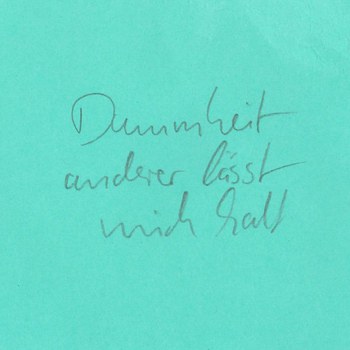 Dummheit
anderer lässt
mich kalt